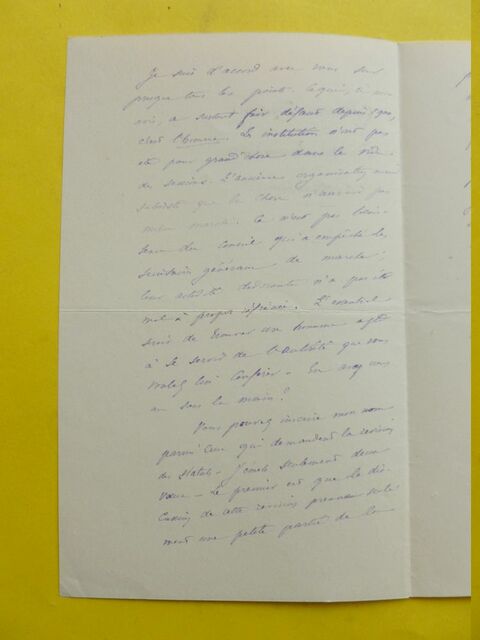 Je suis d'accord avec vous sur
presque tous les points. Ce qui, à mon
avis, a surtout fait défaut depuis 1900,
c'est l'homme. Les institutions n'ont pas
été pour grand'chose dans le
de sessions. L'ancienne organisation
subsisté que la chose n'aurait pas
mieux marché. Ce n'est pas
du conseil qui a empêché les
secrétaires généraux de marcher ;
leur activité n'a pas été
mal à propos . L'essentiel
serait de trouver un homme apte
à se servir de l'autorité que vous
voulez lui conférer. En avez-vous
un sous la main ?
Vous pouvez inscrire mon nom
parmi ceux qui demandent la révision
des statuts. J'émets seulement deux
vœux. Le premier est que la dis-
cussion de cette révision prenne seule-
ment une petite partie de la